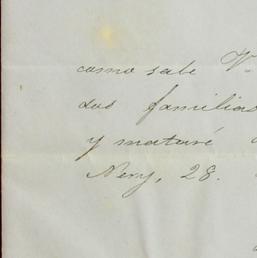 como sabe V.
dos familias
y mataré
Nery, 28.